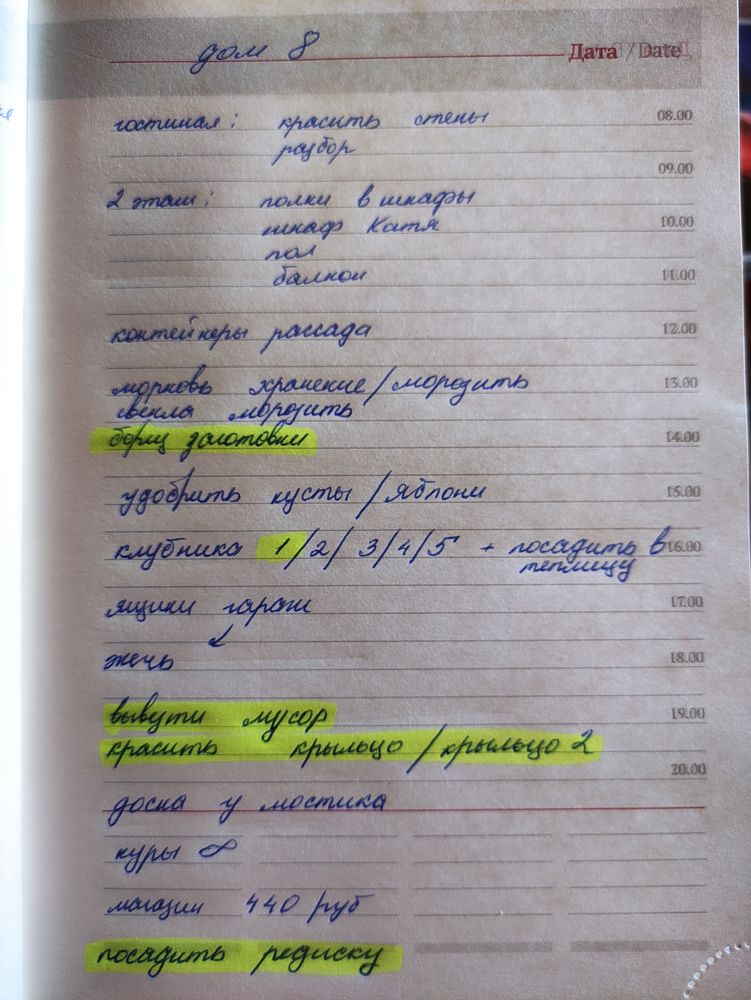 дом 8 Дата / Date
гостиная: красить стены 08.00
разбор
09.00
2 этаж: полки в шкафы
шкаф Катя 10.00
пол
балкон 11.00
контейнеры рассада 12.00
морковь хранение/морозить 13.00
свекла морозить
борщ заготовки 14.00
удобрить кусты/яблони 15.00
клубника 1/2/3/4/5 + посадить в 16.00
теплицу
ящики гараж 17.00
↙
жечь 18.00
вывезти мусор 19.00
красить крыльцо/крыльцо 2
20.00
доска у мостика
куры ∞
магазин 440 руб
посадить редиску